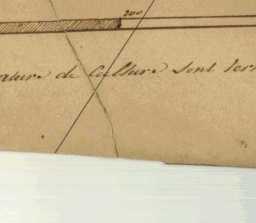 200
ature de Culture sont ter